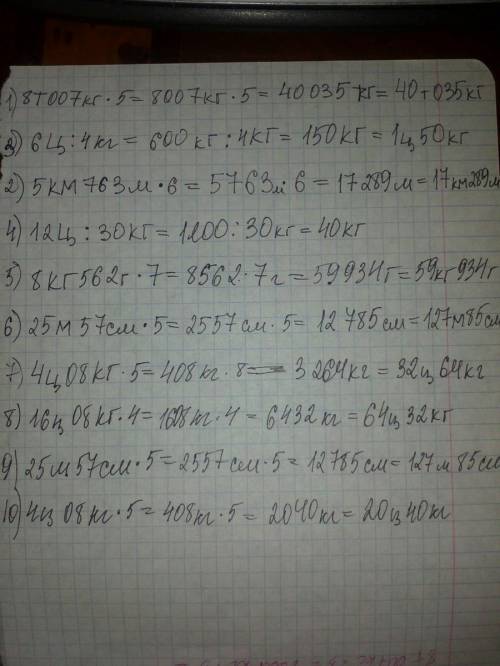 1) 8т007кг·5=8007кг·5=40035кг=40т035кг
3) 6ц:4кг=600кг:4кг=150кг=1ц50кг
2) 5км763м·6=5763м·6=17289м=17км289м
4) 12ц:30кг=1200:30кг=40кг
5) 8кг562г·7=8562·7г=59934г=59кг934г
6) 25м57см·5=2557см·5=12785см=127м85см
7) 4ц08кг·5=408кг·8=3264кг=32ц64кг
8) 16ц08кг·4=1608кг·4=6432кг=64ц32кг
9) 25м57см·5=2557см·5=12785см=127м85см
10) 4ц08кг·5=408кг·5=2040кг=20ц40кг